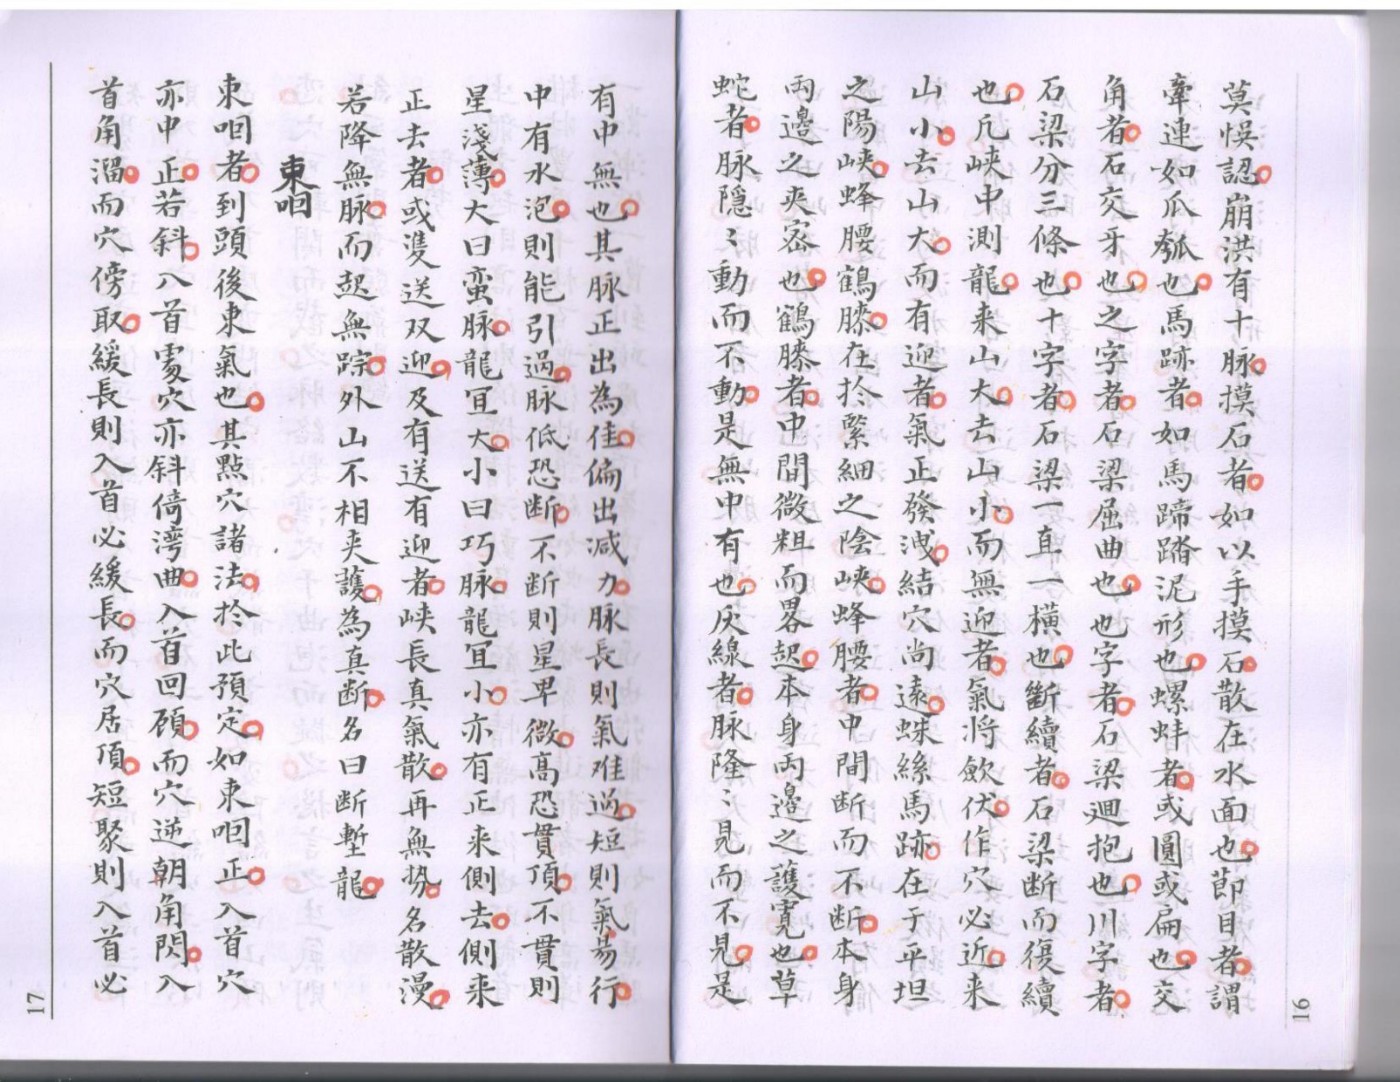 莫悞認崩洪有十脉摸石者如以手摸石散在水面也節目者謂
牽連如瓜瓠也馬跡者如馬蹄踏泥形也螺蚌者或圓或扁也交
角者石交牙也之字者石梁屈曲也也字者石梁迴抱也川字者
石梁分三條也十字者石梁一直一橫也斷續者石梁断而復續
也凢峽中測龍来山大去山小而無迎者氣將歛伏作穴必近来
山小去山大而有迎者氣正發洩結穴尚遠蛛絲馬跡在于平坦
之陽峽蜂腰鶴膝在於緊細之陰峽蜂腰者中間断而不断本身
両邊之夾宻也鶴膝者中間微粗而畧起本身両邊之護宻也草
蛇者脉隱之動而不動是無中有也灰線者脉隆之見而不見是
16
有中無也其脉正出為佳偏出减力脉長則氣难過短則氣昜行
中有水泡則能引過脉低恐断不断則星卑微高恐貫頂不貫則
星淺薄大曰蛮脉龍宜大小曰巧脉龍宜小亦有正来側去側来
正去者或護送双迎及有送有迎者峽長真氣散再無势名散漫
若降無脉而起無踪外山不相夾護為真断名曰断塹龍
束咽
束咽者到頭後束氣也其點穴諸法於此預定如束咽正入首穴
亦中正若斜入首宎穴亦斜倚湾曲入首回顧而穴逆朝角閃入
首角溜而穴傍取緩長則入首必緩長而穴居頂短聚則入首必
17